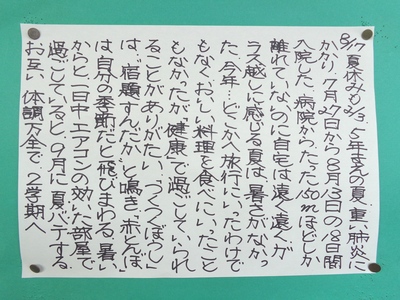 8/17 夏休みも2/3. 5年まえの夏、重い肺炎に
かかり、7月27日から8月13日の18日間
入院した。病院からたった150mほどしか
離れていないのに自宅は遠く遠くガ
ラス越しに感じる夏は暑さがなかっ
た。今年…どこかへ旅行にいったわけで
もなく、おいしい料理を食べにいったこと
もなかったが「健康」で過ごしていられ
ることがありがたい。「つくつくぼうし」
は、"宿題すんだか"と鳴き「赤とんぼ」
は自分の季節だと飛びまわる。暑い
からと一日中エアコンの効いた部屋で
過ごしていると、9月に夏バテする。
お互い 体調万全で、2学期へ